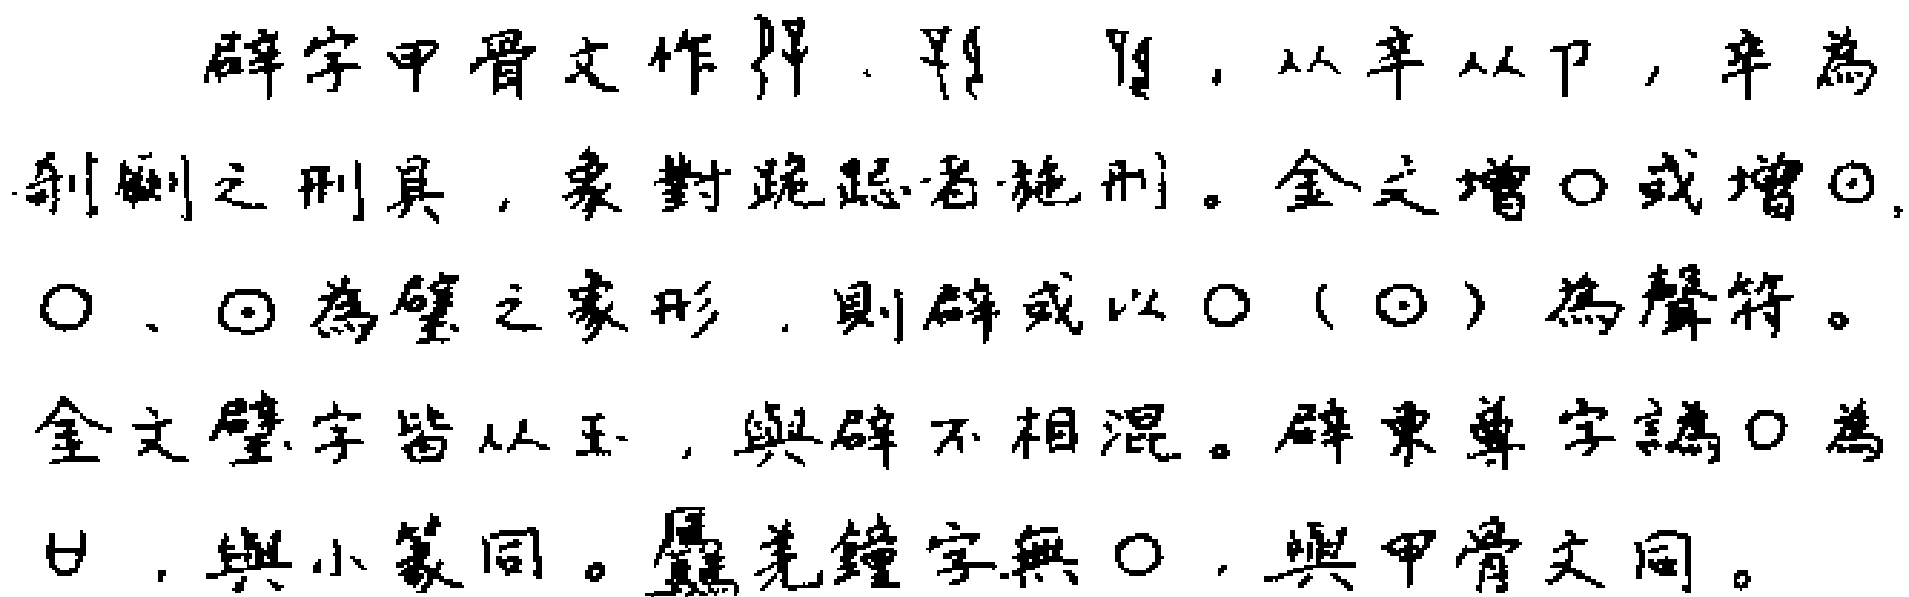 辟字甲骨文作、，从辛从卩，辛為
剞劂之刑具，象對跪跽者施刑。金文增○或增⊙，
○、⊙為璧之象形，則辟或以○（⊙）為聲符。
金文璧字皆从玉，與辟不相混。辟東尊字譌○為
ㅂ，與小篆同。羌鐘字無○，與甲骨文同。